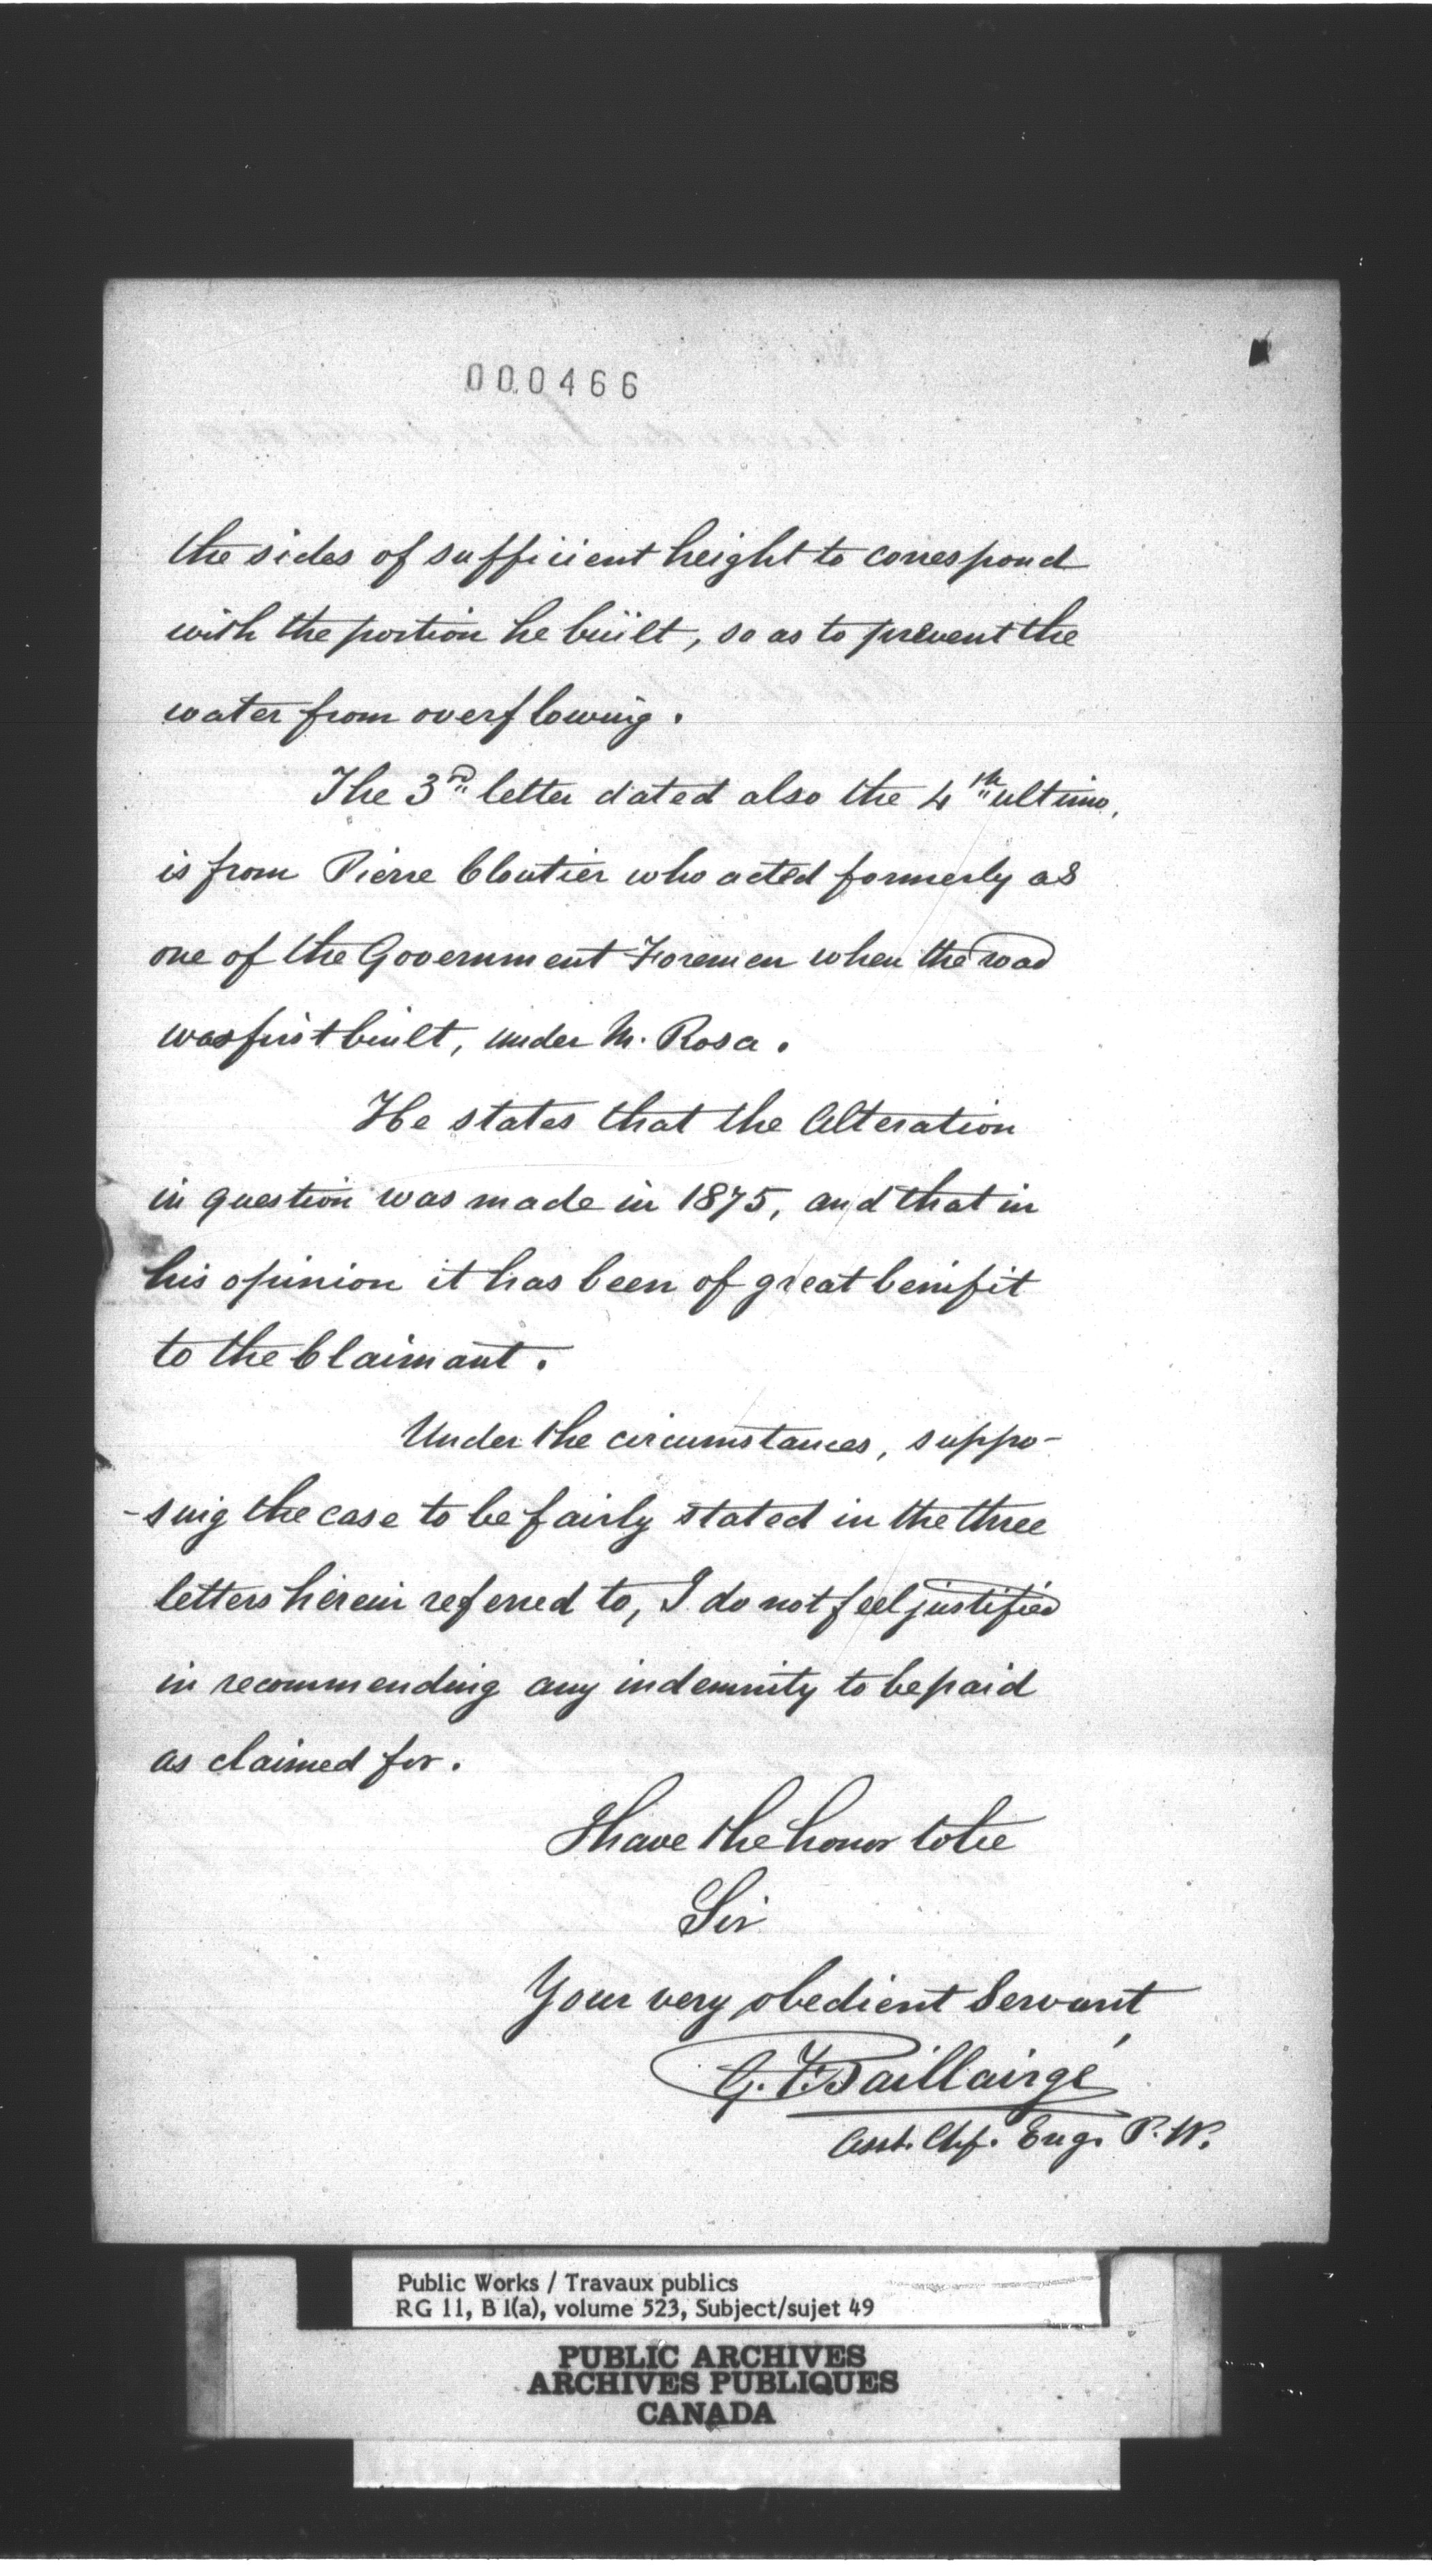 000466
the sides of sufficient height to correspond
with the portion he built, so as to prevent the
water from overflowing.
The 3rd letter dated also the 4th ultimo,
is from Pierre Cloutier who acted formerly as
one of the Government Foremen when the road
was first built, under M. Rosa.
He states that the Alteration
in question was made in 1875, and that in
his opinion it has been of great benifit
to the Claimant.
Under the circumstances, suppo-
-sing the case to be fairly stated in the three
letters herein referred to, I do not feel justified
in recommending any indemnity to be paid
as claimed for.
I have the honor to be
Sir
Your very obedient Servant
G. F. Baillairgé
Asst. Chf. Eng. P. W.
Public Works / Travaux publics
RG 11, B 1(a), volume 523, Subject/sujet 49
PUBLIC ARCHIVES
ARCHIVES PUBLIQUES
CANADA